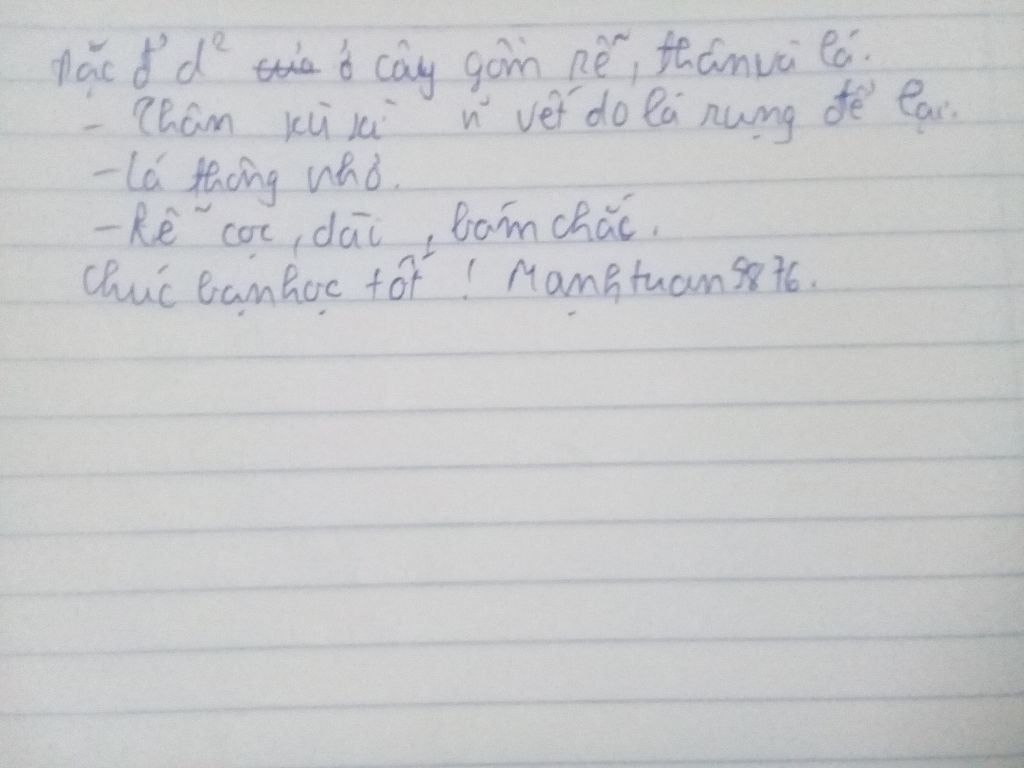 Đặc đ² d² ở cây gồm rễ, thân và lá.
- Thân xù xì vì vết do lá rụng để lại.
- Lá thông nhỏ.
- Rễ cọc, dài, bám chắc.
Chúc bạn học tốt! Mạnhtuan9876.